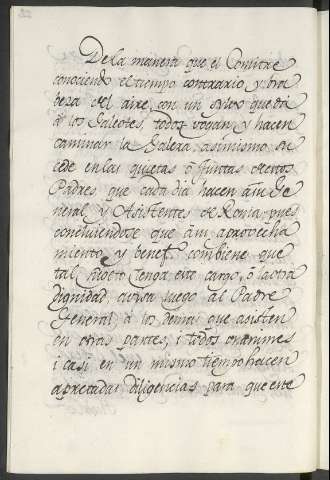 De la manera que el Comitre
conociendo el tiempo contrario y bra
beza del aire, con un sylvo que da
a los Galeotes, todos vogan y hacen
caminar la Galera, asimismo su
cede en las quietas ò Juntas de estos
Padres, que cada dia hacen à su Ge
neral, y Asistentes de Roma; pues
concluiendose que à su aprovecha
miento, y benef.º combiene que
tal sugeto tenga este cargo, ò la otra
dignidad, avisa luego al Padre
General, à los demas que asisten
en otras partes, i todos unanimes
i casi en un mismo tiempo hacen
apretadas diligencias para que este